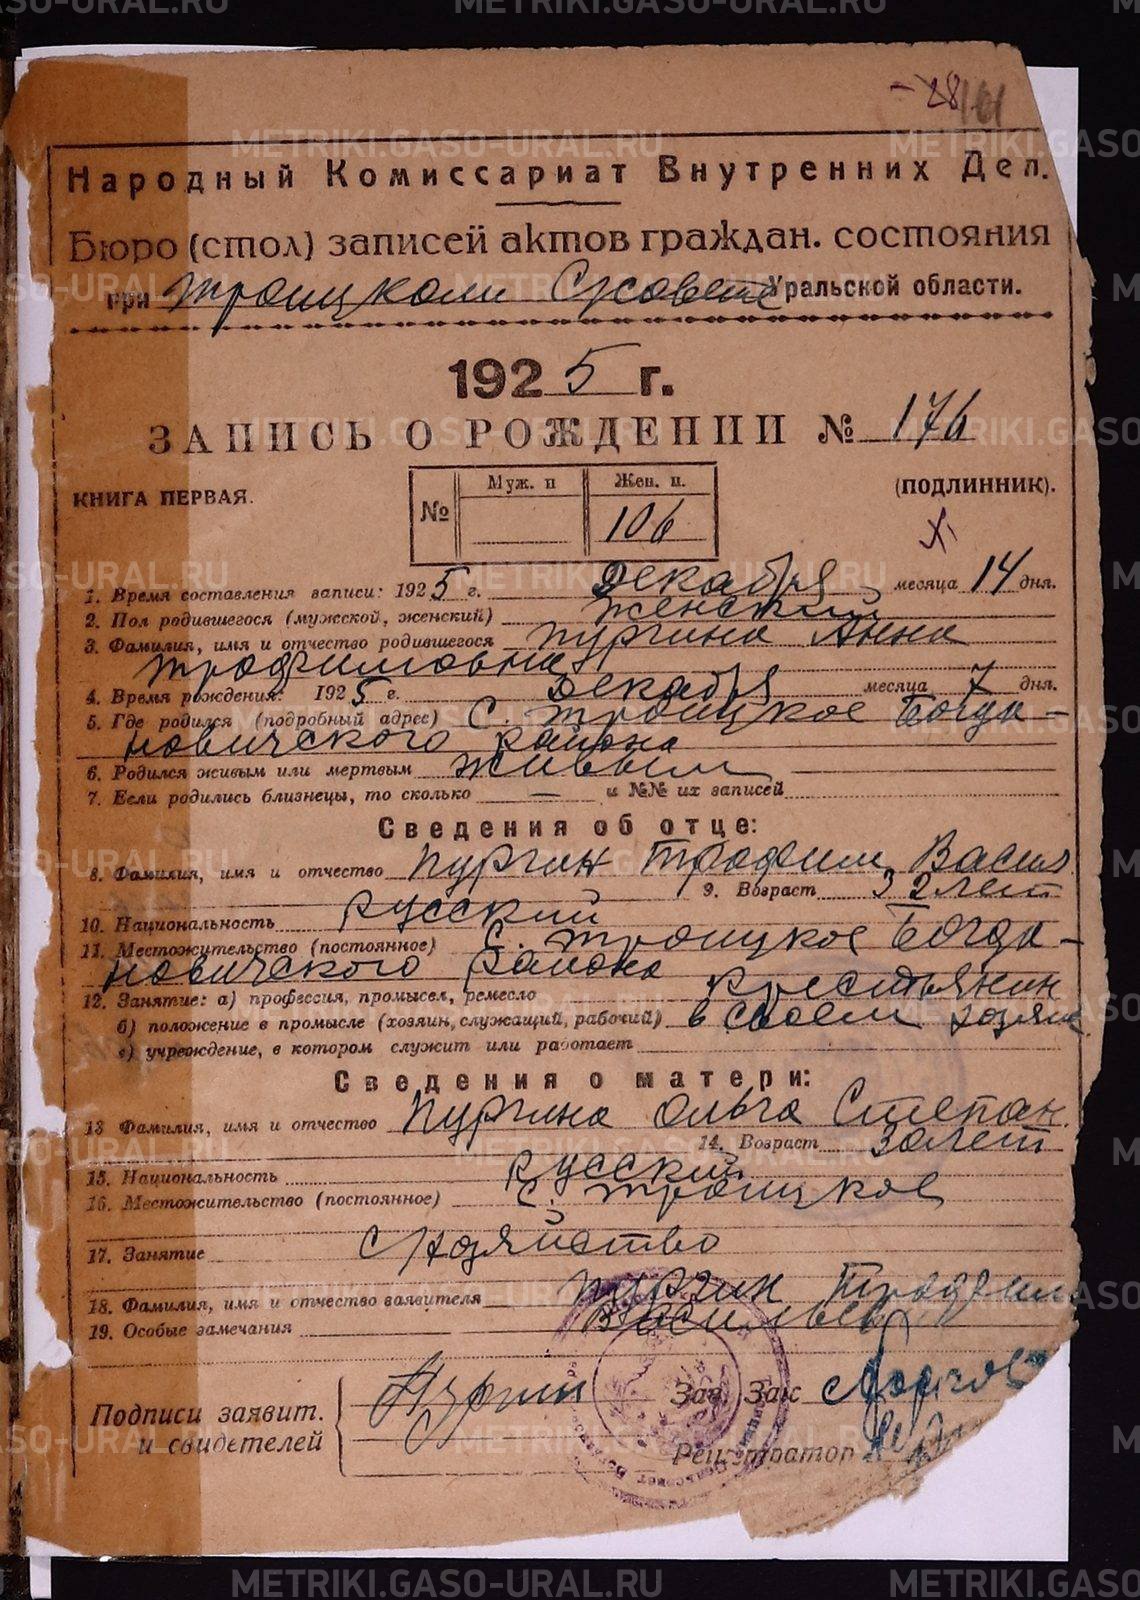 METRIKI.GASO-URAL.RU
Народный Комиссариат Внутренних Дел.
Бюро (стол) записей актов граждан. состояния
при Троицком С/совете Уральской области.
1925 г.
ЗАПИСЬ О РОЖДЕНИИ № 176
КНИГА ПЕРВАЯ. (ПОДЛИННИК).
№ Муж. п Жен. п.
106
1. Время составления записи: 1925 г. Декабря месяца 14 дня.
2. Пол родившегося (мужской, женский) женский
3. Фамилия, имя и отчество родившегося Пургина Анна
Трофимовна
4. Время рождения: 1925 г. Декабря месяца 7 дня.
5. Где родился (подробный адрес) С. Троицкое Богда-
новичского района
6. Родился живым или мертвым живым
7. Если родились близнецы, то сколько — и №№ их записей
Сведения об отце:
8. Фамилия, имя и отчество Пургин Трофим Васил
9. Возраст 32 лет
10. Национальность русский
11. Местожительство (постоянное) С. Троицкое Богда-
новичского района
12. Занятие: а) профессия, промысел, ремесло крестьянин
б) положение в промысле (хозяин, служащий, рабочий) в своем хозяис
в) учреждение, в котором служит или работает
Сведения о матери:
13 Фамилия, имя и отчество Пургина Ольга Степан.
14. Возраст 30 лет
15. Национальность русский
16. Местожительство (постоянное) С. Троицкое
17. Занятие С/хозяйство
18. Фамилия, имя и отчество заявителя Пургин Трофим
19. Особые замечания Васильев
Подписи заявит. и свидетелей
Пургин
Зав. Загс
Регистратор